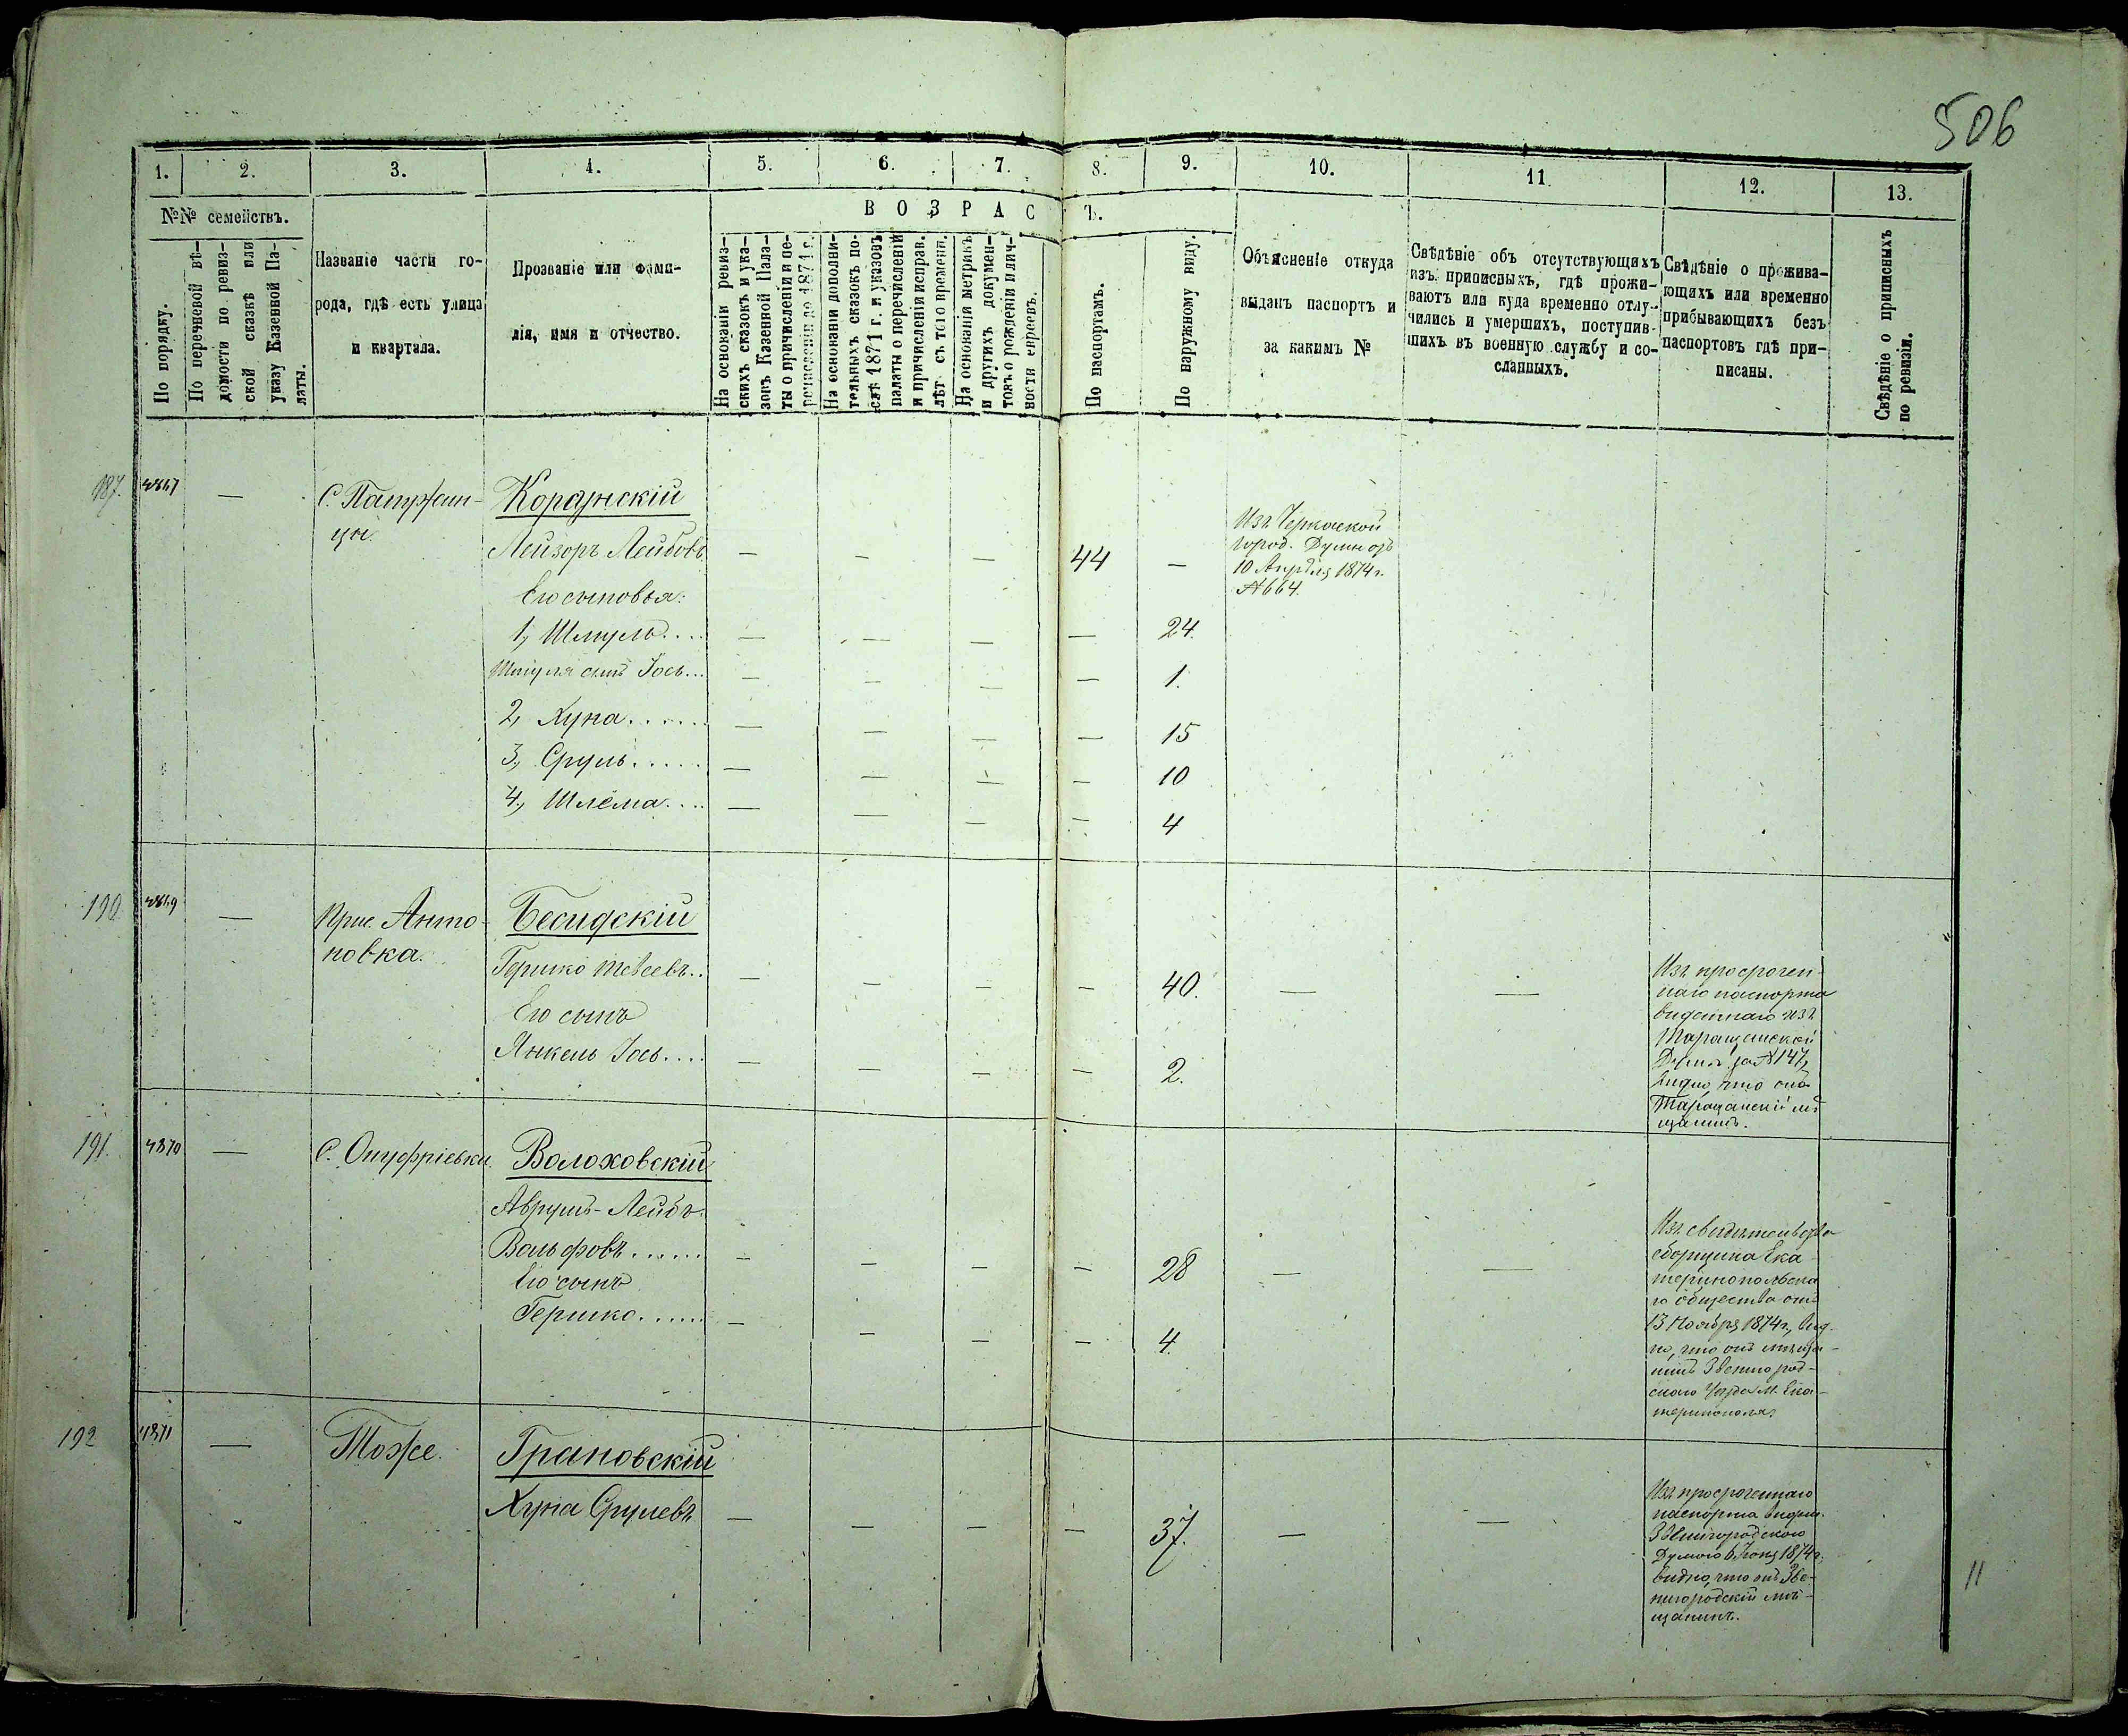 506
1. 2. 3. 4. 5. 6. 7. 8. 9. 10. 11. 12. 13.
№№ семействъ.
В О З Р А С Ъ.
По порядку.
По перечневой вѣ-
домости по ревиз-
ской сказкѣ или
указу Казенной Па-
латы.
Названіе части го-
рода, гдѣ есть улица
и квартала.
Прозваніе или фами-
лія, имя и отчество.
На основаніи ревиз-
скихъ сказокъ и ука-
зовъ Казенной Пала-
ты о причисленіи и пе-
речисленіи до 1871 г.
На основаніи дополни-
тельныхъ сказокъ по-
слѣ 1871 г. и указовъ
палаты о перечисленіи
и причисленіи исправ.
лѣт съ того времени.
На основаніи метрикъ
и другихъ докумен-
товъ о рожденіи и лич-
ности евреевъ.
По паспортамъ.
По наружному виду.
Объясненіе откуда
выданъ паспортъ и
за какимъ №
Свѣдѣніе объ отсутствующихъ
изъ приписныхъ, гдѣ прожи-
ваютъ или куда временно отлу-
чились и умершихъ, поступив-
шихъ въ военную службу и со-
сланныхъ.
Свѣдѣніе о прожива-
ющихъ или временно
прибывающихъ безъ
паспортовъ гдѣ при-
писаны.
Свѣдѣніе о приписныхъ
по ревизіи.
187. — С. Патржин- Корсунскій
цы.
Лейзоръ Лейбовъ — — — 44 —
Изъ Черкаской
город. Думы отъ
10 Апрѣля 1874 г.
№ 664.
Его сыновья:
1, Шмуль.... — — — — 24.
Шмуля сынъ Іось... — — — — 1.
2, Хуна...... — — — — 15
3, Сруль..... — — — — 10
4, Шлема.... — — — — 4
190. 4869 — Прис. Анто- Бесидскій
новка.
Гершко Тевеевъ.. — — — — 40. — —
Его сынъ
Янкель Іось.... — — — — 2.
Изъ просрочен-
наго паспорта
виданнаго изъ
Таращанской
Думы за № 147,
видно, что онъ
Таращанскій мѣ
щанинъ.
191. 4870 — С. Онуфріевки. Волоховскій
Аврумъ-Лейбъ.
Вольфовъ...... — — — — 28 — —
Его сынъ
Гершко...... — — — — 4.
Изъ свидѣтельства
сборщика Ека
теринопольска
го общества отъ
13 Ноября 1874 г., вид-
но, что онъ мѣща-
нинъ Звенигород-
скаго Уѣзда М. Ека-
теринополя.
192 4871 — Тоже. Грановскій
Хуна Срулевъ — — — — 37. — —
Изъ просроченнаго
паспорта выдан.
Звенигородскою
Думою 6 Іюня 1874 г.
видно, что онъ Зве-
нигородскій мѣ-
щанинъ.
11